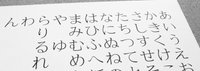 あいうえお
かきくけこ
さしすせそ
たちつてと
なにぬね
はひふへ
まみむめ
やゆ
らりるれ
わ
ん